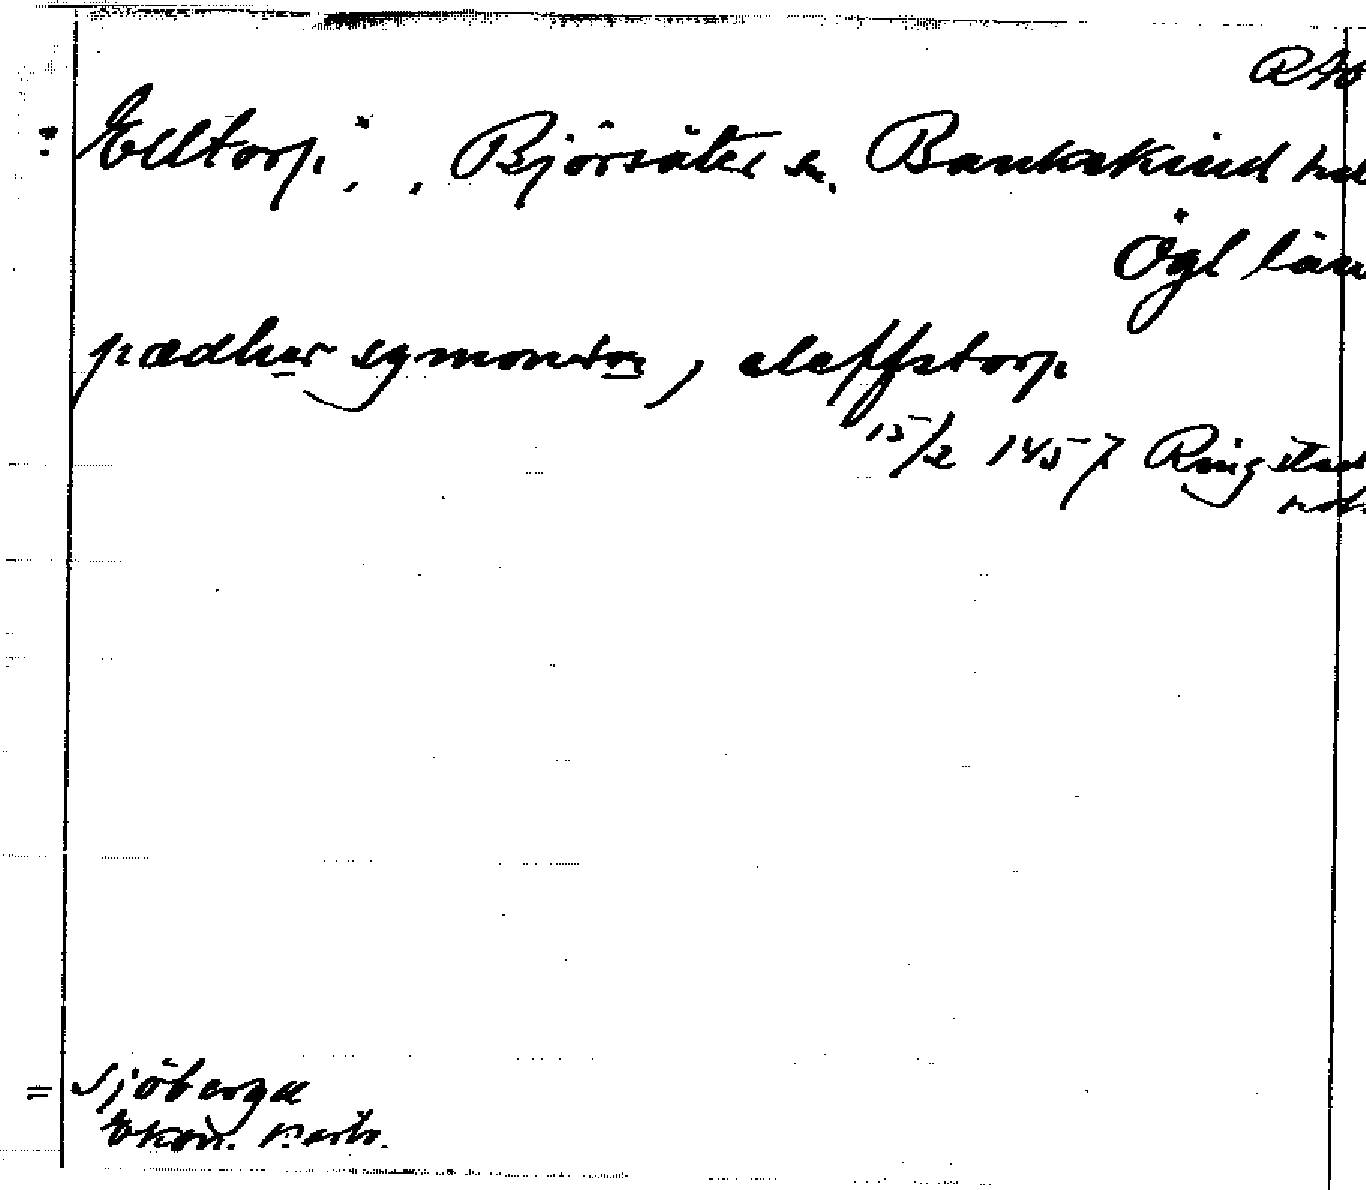 Elltorp, Björsäter sn, Bankekind hd
Ögl län
pædher symonson, eleffstorp
15/2 1457 Ringstad
Sjöberga
Ekon. kartb.